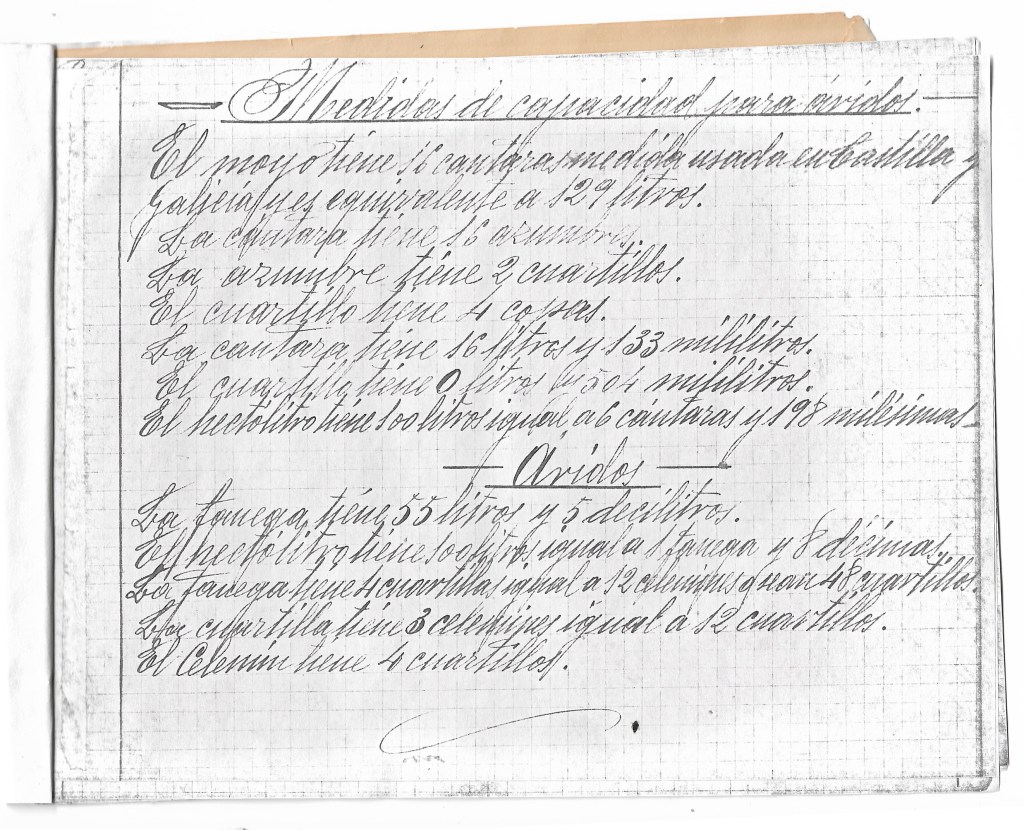 Medidas de capacidad para áridos.
El moyo tiene 16 cantaras medida usada en Castilla y
Galicia y es equivalente a 129 litros.
La cántara tiene 16 azumbres.
La azumbre tiene 2 cuartillos.
El cuartillo tiene 4 copas.
La cantara tiene 16 litros y 133 mililitros.
El cuartillo tiene 0 litros y 504 mililitros.
El hectolitro tiene 100 litros igual a 6 cántaras y 198 milésimas
Aridos
La fanega tiene 55 litros y 5 decilitros.
El hectólitro tiene 100 litros, igual a 1 fanega y 8 décimas.
La fanega tiene 4 cuartillas igual a 12 celemines o sean 48 cuartillos.
La cuartilla tiene 3 celemines igual a 12 cuartillos.
El Celemin tiene 4 cuartillos.